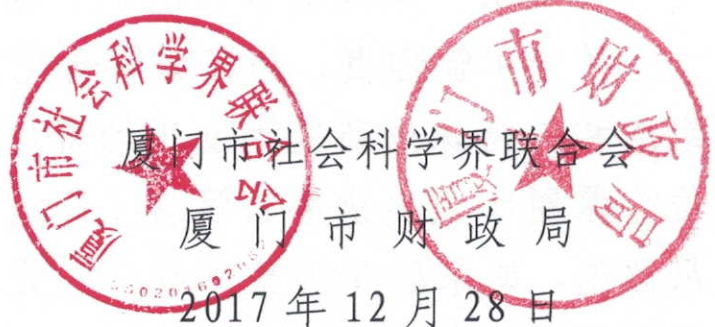 厦门市社会科学界联合会
厦门市财政局
厦门市社会科学界联合会
厦门市财政局
2017年12月28日